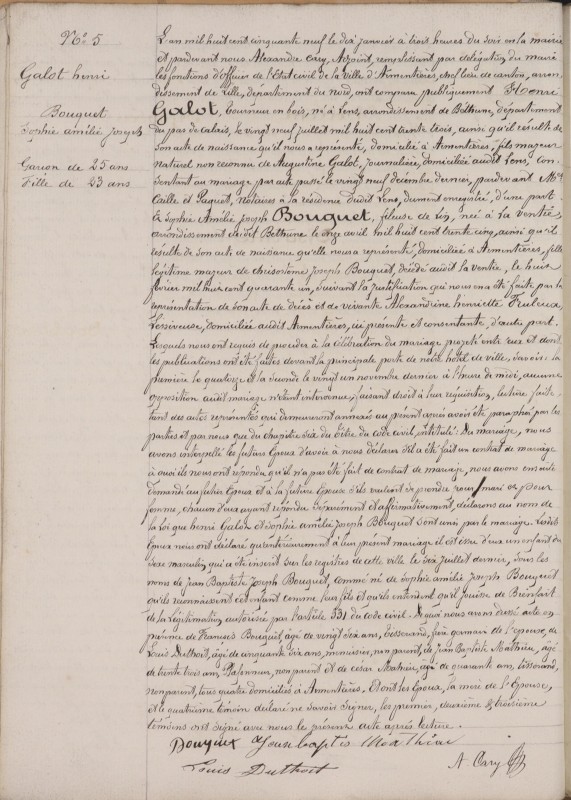 N.° 5
Galot henri
Bouquet
Sophie amélie joseph
Garçon de 25 ans
Fille de 23 ans
L'an mil huit cent cinquante neuf le dix janvier à trois heures du soir en la mairie
et pardevant nous Alexandre Cary, Adjoint, remplissant par délégation du maire
les fonctions d'officier de l'Etat civil de la ville d'Armentières, chef lieu de canton, arron-
dissement de Lille, département du nord, ont comparu publiquement Henri
Galot, tourneur en bois, né à Lens, arrondissement de Béthune, département
du pas de calais, le vingt neuf juillet mil huit cent trente trois, ainsi qu'il résulte de
son acte de naissance qu'il nous a représenté, domicilié à Armentières, fils majeur
naturel non reconnu de Augustine Galot, journalière, domiciliée audit Lens, con-
sentant au mariage par acte passé le vingt neuf décembre dernier, pardevant M.es
Caille et Paquet, Notaires à la résidence dudit Lens, dument enregistré, d'une part.
Et Sophie Amélie Joseph Bouquet, fileuse de lin, née à La Ventie,
arrondissement dudit Béthune le onze avril mil huit cent trente cinq, ainsi qu'il
résulte de son acte de naissance qu'elle nous a représenté, domiciliée à Armentières, fille
légitime majeure de chrisostome Joseph Bouquet, décédé audit la Ventie, le huit
février mil huit cent quarante un, suivant la justification qui nous en a été faite par la
représentation de son acte de décès et de vivante Alexandrine henriette
Lessiveuse, domiciliée audit Armentières, ici présente et consentante, d'autre part.
Lesquels nous ont requis de procéder à la célébration du mariage projeté entre eux et dont
les publications ont été faites devant la principale porte de notre hôtel de ville, savoir: la
première le quatorze et la seconde le vingt un novembre dernier à l'heure de midi, aucune
opposition audit mariage n'étant intervenue, faisant droit à leur réquisition, lecture faite
tant des actes représentés qui demeureront annexés au présent après avoir été paraphés par les
parties et par nous que du chapitre six du titre du code civil, intitulé: Du mariage, nous
avons interpellé les futurs Epoux d'avoir à nous déclarer s'il a été fait un contrat de mariage
à quoi ils nous ont répondu qu'il n'a pas été fait de contrat de mariage, nous avons ensuite
demandé au futur Epoux et à la future Epouse s'ils veulent se prendre pour mari et pour
femme, chacun d'eux ayant répondu séparément et affirmativement, déclarons au nom de
la loi que henri Galot et Sophie amélie Joseph Bouquet sont unis par le mariage. Lesdits
Epoux nous ont déclaré qu'antérieurement à leur présent mariage il est issu d'eux un enfant du
sexe masculin qui a été inscrit sur les registres de cette ville le dix juillet dernier, sous les
noms de Jean Baptiste Joseph Bouquet, comme né de Sophie amélie Joseph Bouquet
qu'ils reconnaissent cet enfant comme leur fils et qu'ils entendent qu'il jouisse du Bienfait
de la légitimation autorisée par l'article 331 du code civil. De quoi nous avons dressé acte en
présence de François Bouquet, âgé de vingt six ans, tisserand, frère germain de l'épouse, de
Louis Duthoit, âgé de cinquante six ans, menuisier, non parent, de Jean Baptiste Mathieu, âgé
de trente trois ans, non parent et de césar Mathieu, âgé de quarante ans, tisserand,
non parent, tous quatre domiciliés à Armentières. Et ont les Epoux, la mère de l'Epouse,
et le quatrième témoin déclaré ne savoir signer, les premier, deuxième & troisième
témoins ont signé avec nous le présent acte après lecture.
Louis Duthoit
A Cary